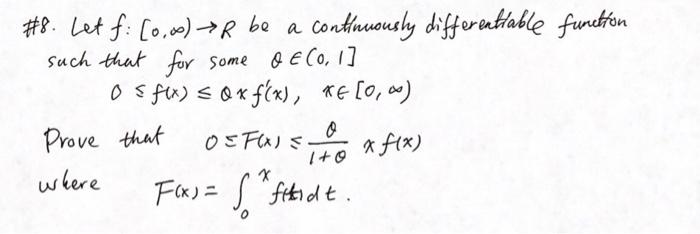 #8. Let f: [0,∞) → R be a continuously differentiable function
such that for some θ ∈ (0, 1]
0 ≤ f(x) ≤ θ x f'(x), x ∈ [0, ∞)
Prove that 0 ≤ F(x) ≤ θ/(1+θ) x f(x)
where F(x) = ∫₀ˣ f(t)dt.